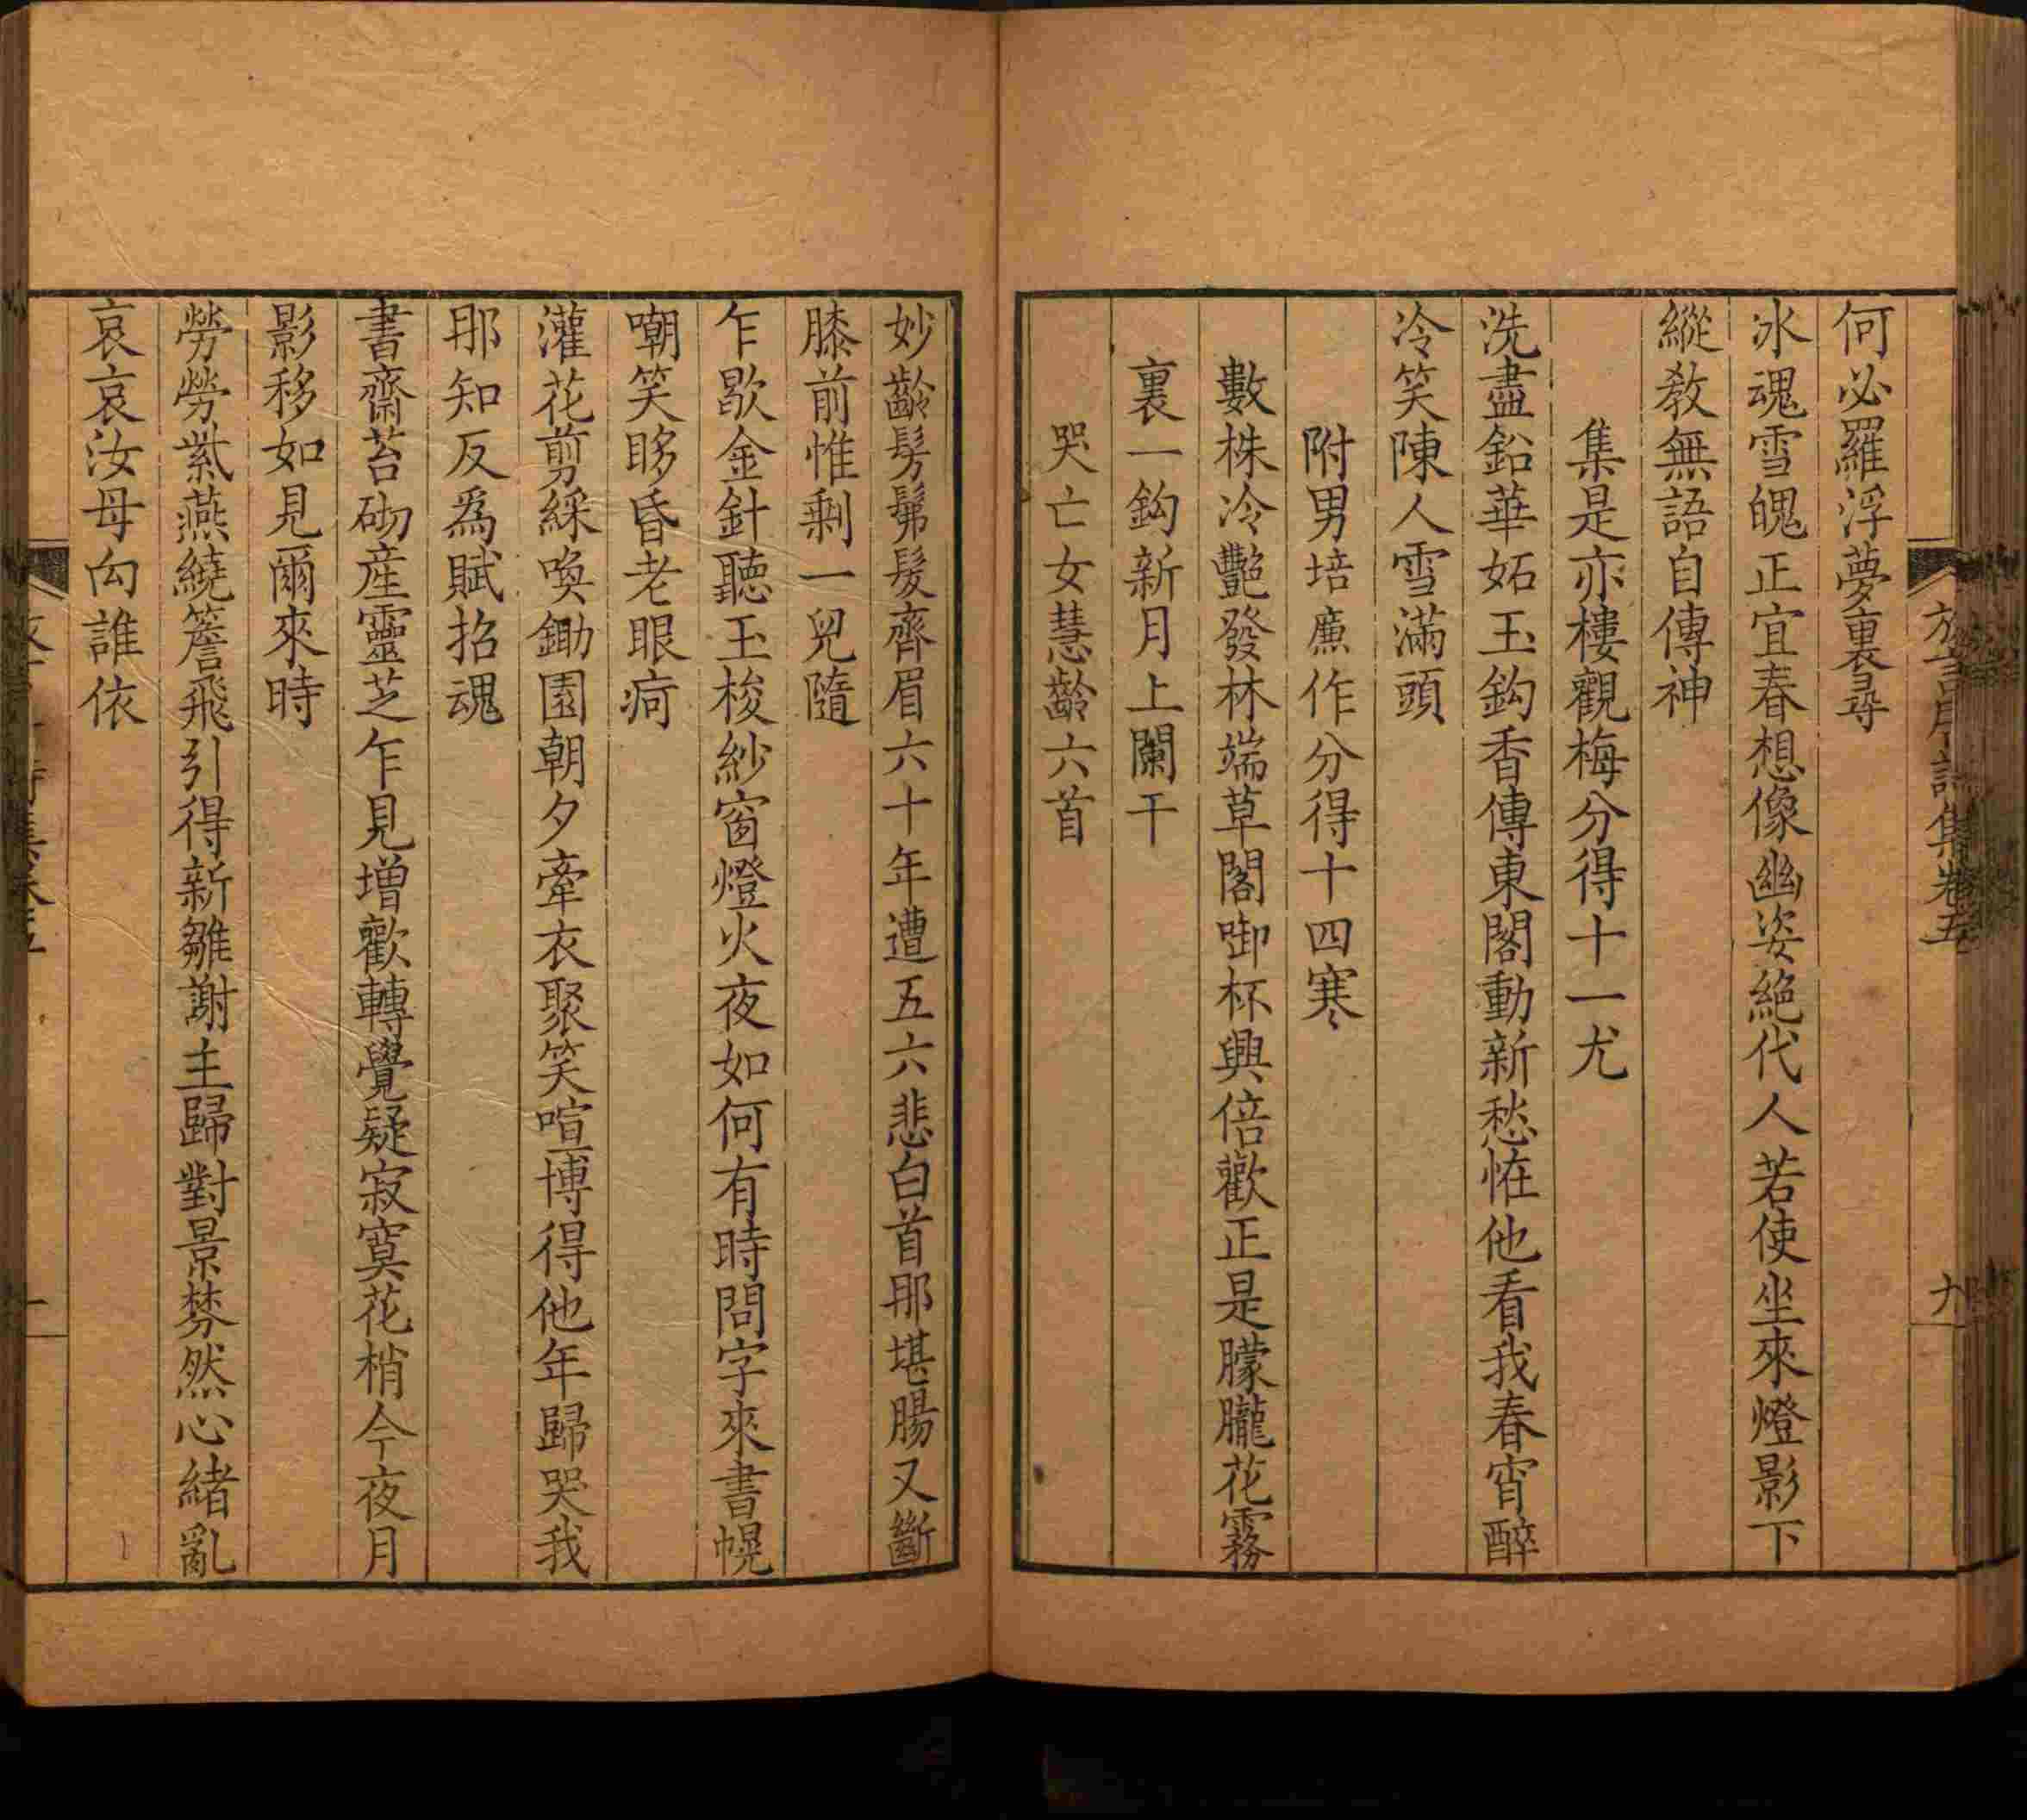 何必羅浮夢裏尋
冰魂雪魄正宜春想像幽姿絕代人若使坐來燈影下
縱教無語自傳神
集是亦樓觀梅分得十一尤
洗盡鉛華妬玉鈎香傳東閣動新愁恠他看我春宵醉
冷笑陳人雪滿頭
附男培廉作分得十四寒
數株冷艷發林端草閣啣杯興倍歡正是朦朧花霧
裏一鈎新月上闌干
哭亡女慧齡六首
妙齡髣髴髮齊眉六十年遭五六悲白首那堪腸又斷
膝前惟剩一兒隨
乍歇金針聽玉梭紗窗燈火夜如何有時問字來書幌
嘲笑眵昏老眼疴
灌花剪綵喚鋤園朝夕牽衣聚笑喧博得他年歸哭我
那知反爲賦招魂
書齋苔砌産靈芝乍見增歡轉覺疑寂寞花梢今夜月
影移如見爾來時
勞勞紫燕繞簷飛引得新雛謝主歸對景棼然心緒亂
哀哀汝母向誰依